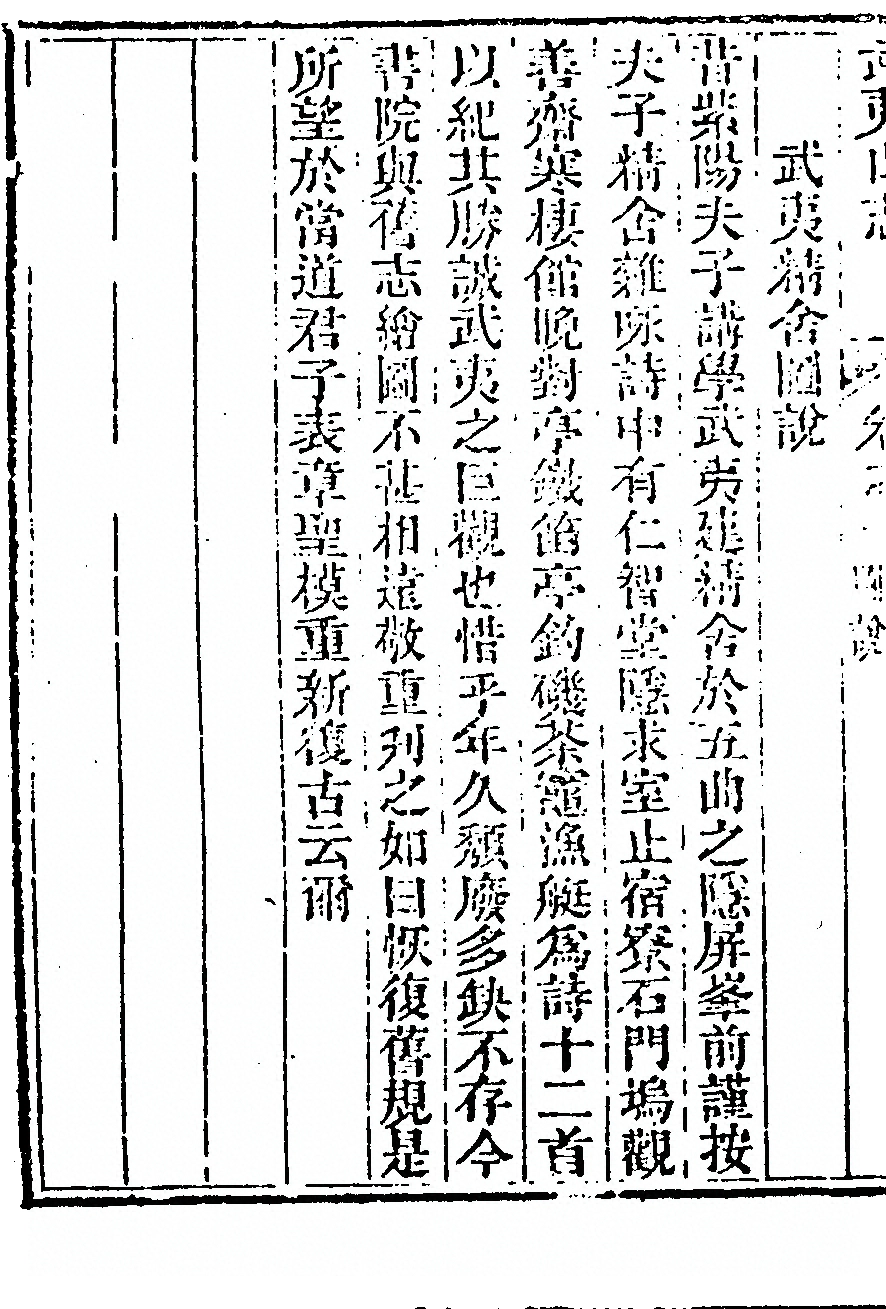 武夷山志 卷之 圖說
武夷精舍圖說
昔紫陽夫子講學武夷建精舍於五曲之隱屏峯前謹按
夫子精舍雜咏詩中有仁智堂隱求室止宿寮石門塢觀
善齋寒棲館晚對亭鐵笛亭釣磯茶竈漁艇爲詩十二首
以紀其勝誠武夷之巨觀也惜乎年久頹廢多缺不存今
書院與舊志繪圖不甚相遠敬重刋之如曰恢復舊規是
所望於當道君子表章聖模重新復古云爾